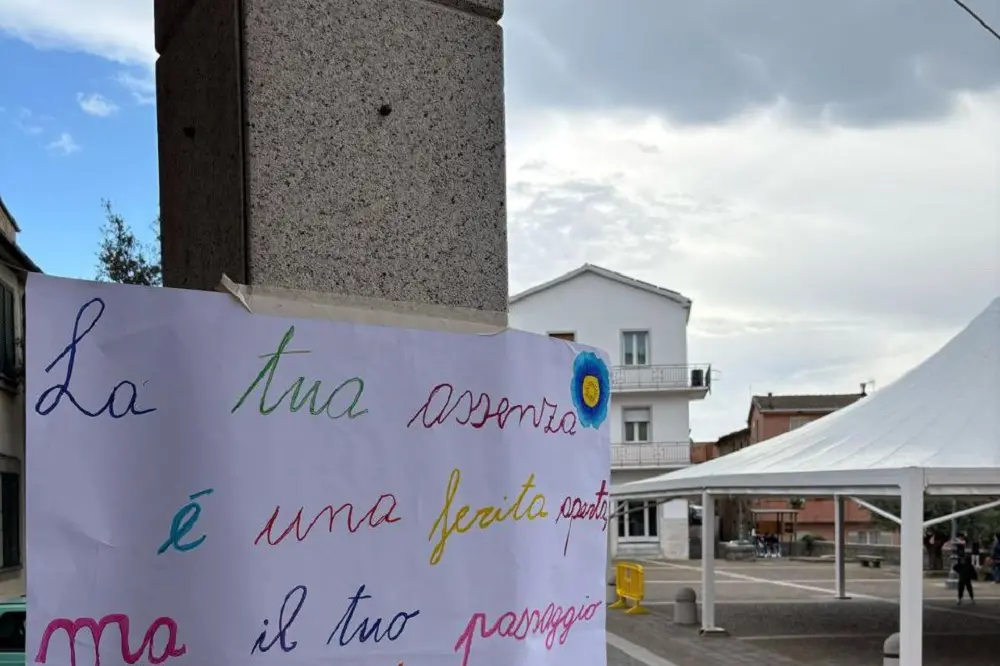 La tua assenza
é una ferita aperta,
ma il tuo passaggio